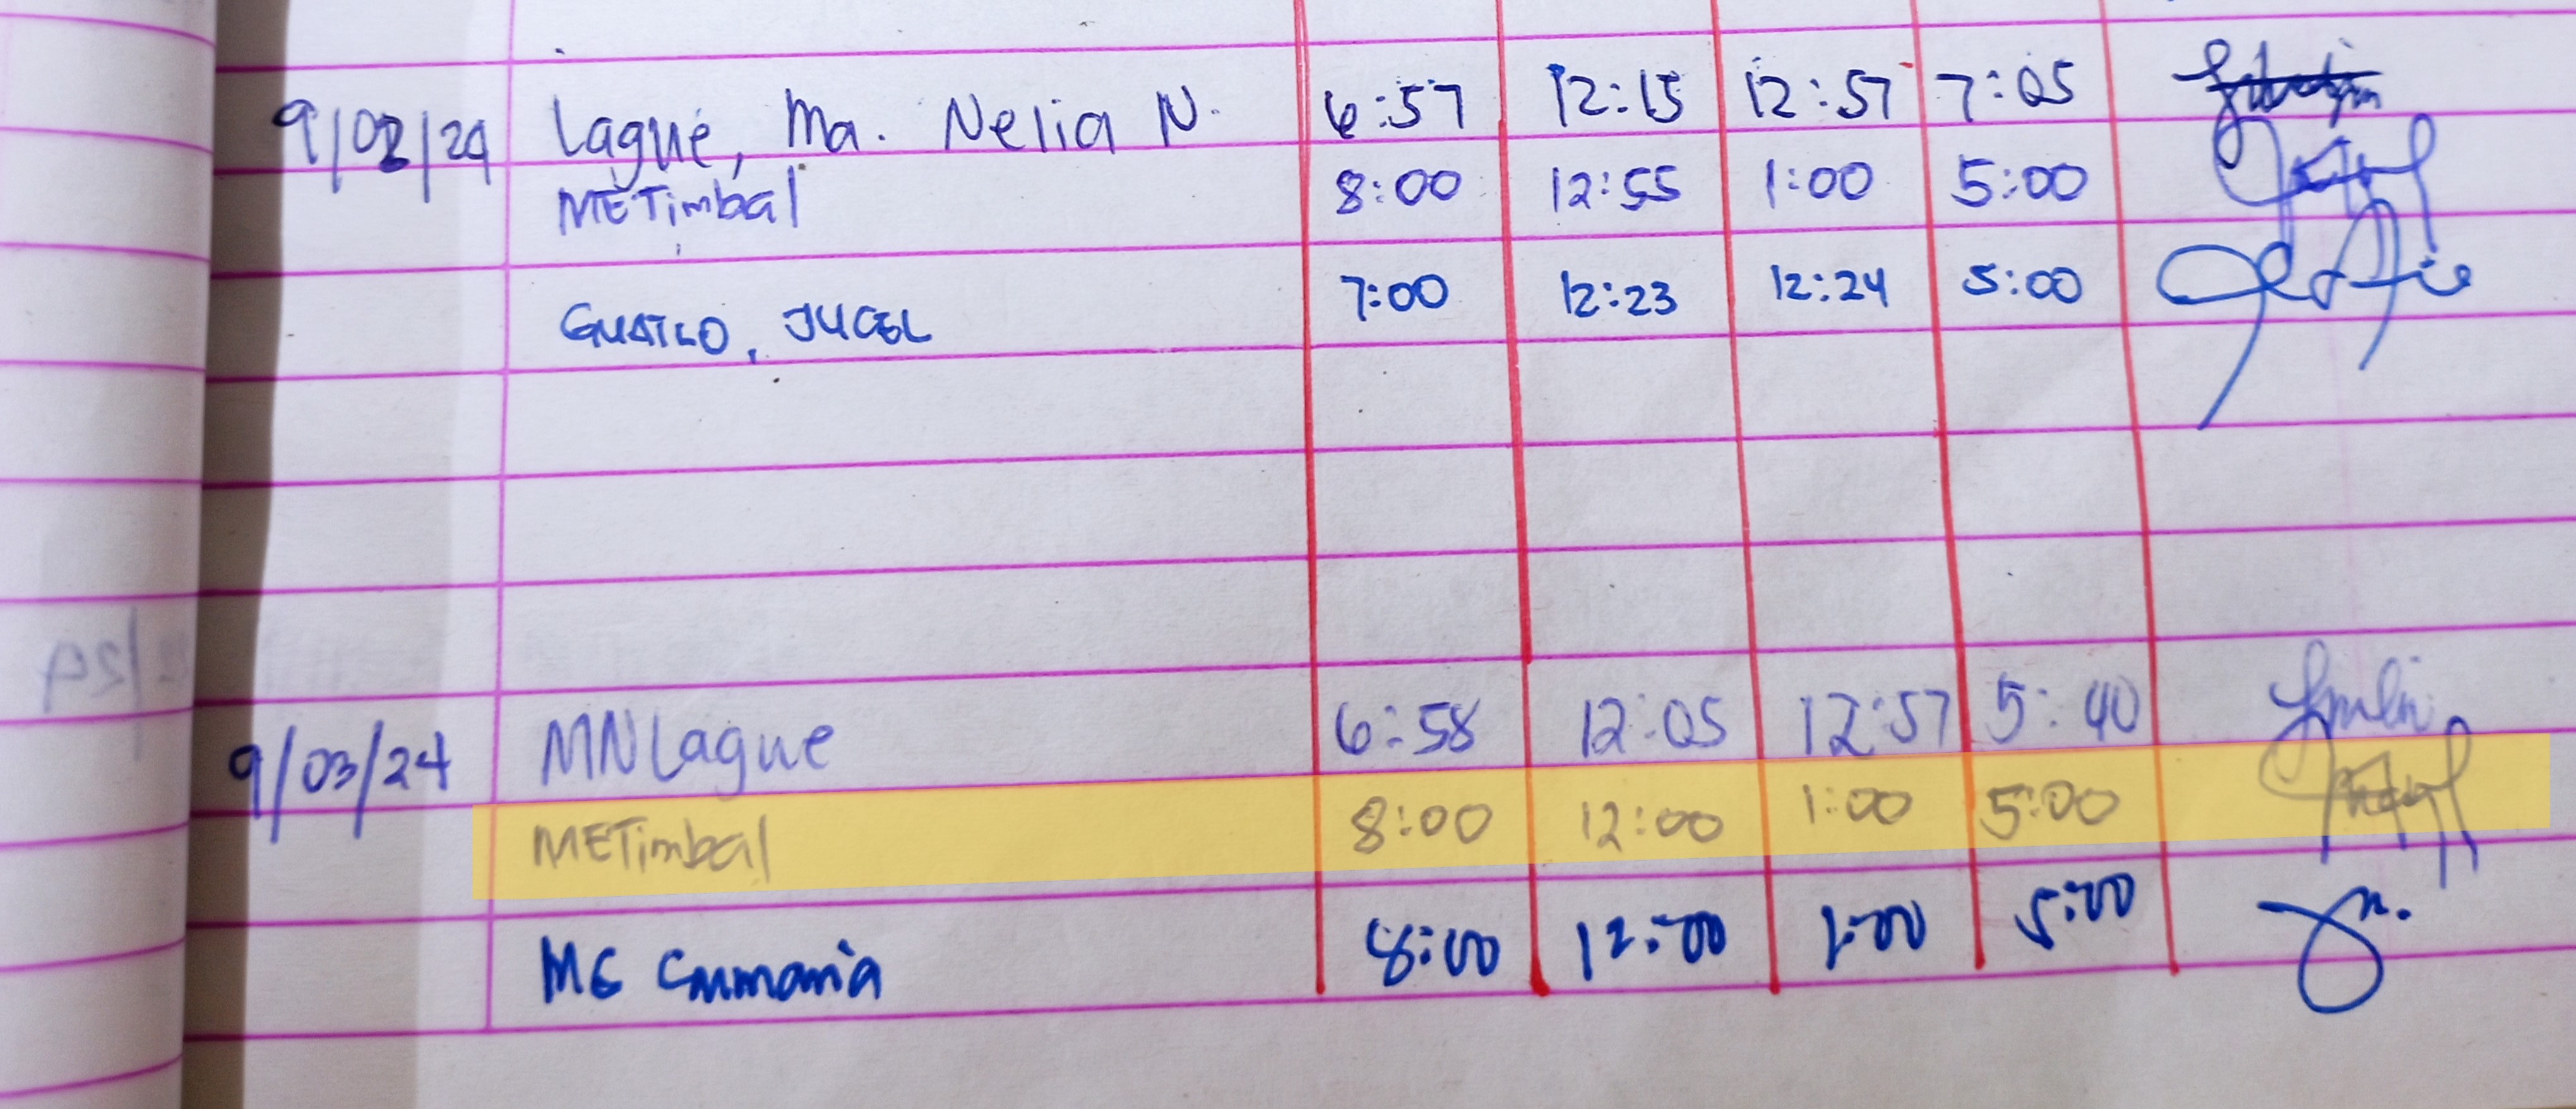 9/02/24 Lague, Ma. Nelia N. 6:57 12:15 12:57 7:05
METimbal 8:00 12:55 1:00 5:00
GUATLO, JUCEL 7:00 12:23 12:24 5:00
9/03/24 MNLague 6:58 12:05 12:57 5:40
METimbal 8:00 12:00 1:00 5:00
8:00 12:00 1:00 5:00